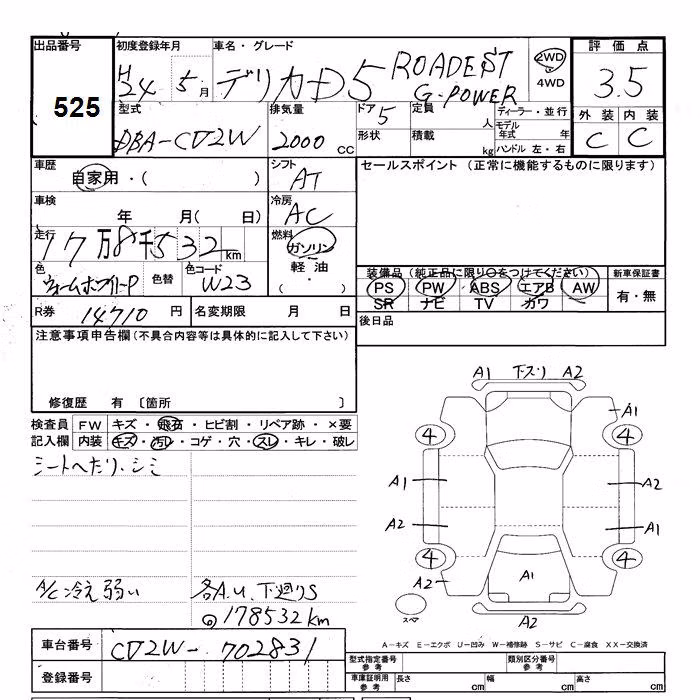 出品番号 初度登録年月 車名・グレード 評価点
525 H24 5月 デリカD5 ROADEST G-POWER 2WD・4WD 3.5
型式 排気量 ドア 5 定員 人 ディーラー・並行 外装 内装
DBA-CV2W 2000cc 形状 積載 kg モデル年式 年 ハンドル 左・右 C C
車歴 自家用・( ) シフト AT セールスポイント (正常に機能するものに限ります)
車検 年 月( 日) 冷房 AC
走行 17万8千532km 燃料 ガソリン・軽油・( )
色 ウォームホワイトP 色替 色コード W23
装備品 (純正品に限り○をつけてください) 新車保証書
PS PW ABS エアB AW 有・無
SR ナビ TV カワ
R券 14710円 名変期限 月 日 後日品
注意事項申告欄 (不具合内容等は具体的に記入して下さい)
修復歴 有 〔箇所 〕
検査員記入欄 FW キズ・飛石・ヒビ割・リペア跡・×要
内装 キズ・汚レ・コゲ・穴・スレ・キレ・破レ
シートヘたり、シミ
A/C冷え弱い 各A.U. 下廻りS
◎178532km
A1 下スリ A2
A1
4 4
A1 A2
A2 A1
4 4
A2 A1
スペア A2
A－キズ E－エクボ U－凹み W－補修跡 S－サビ C－腐食 XX－交換済
車台番号 CV2W-702831
登録番号
型式指定番号 参考 類別区分番号 参考
車庫証明用 参考 長さ cm 幅 cm 高さ cm